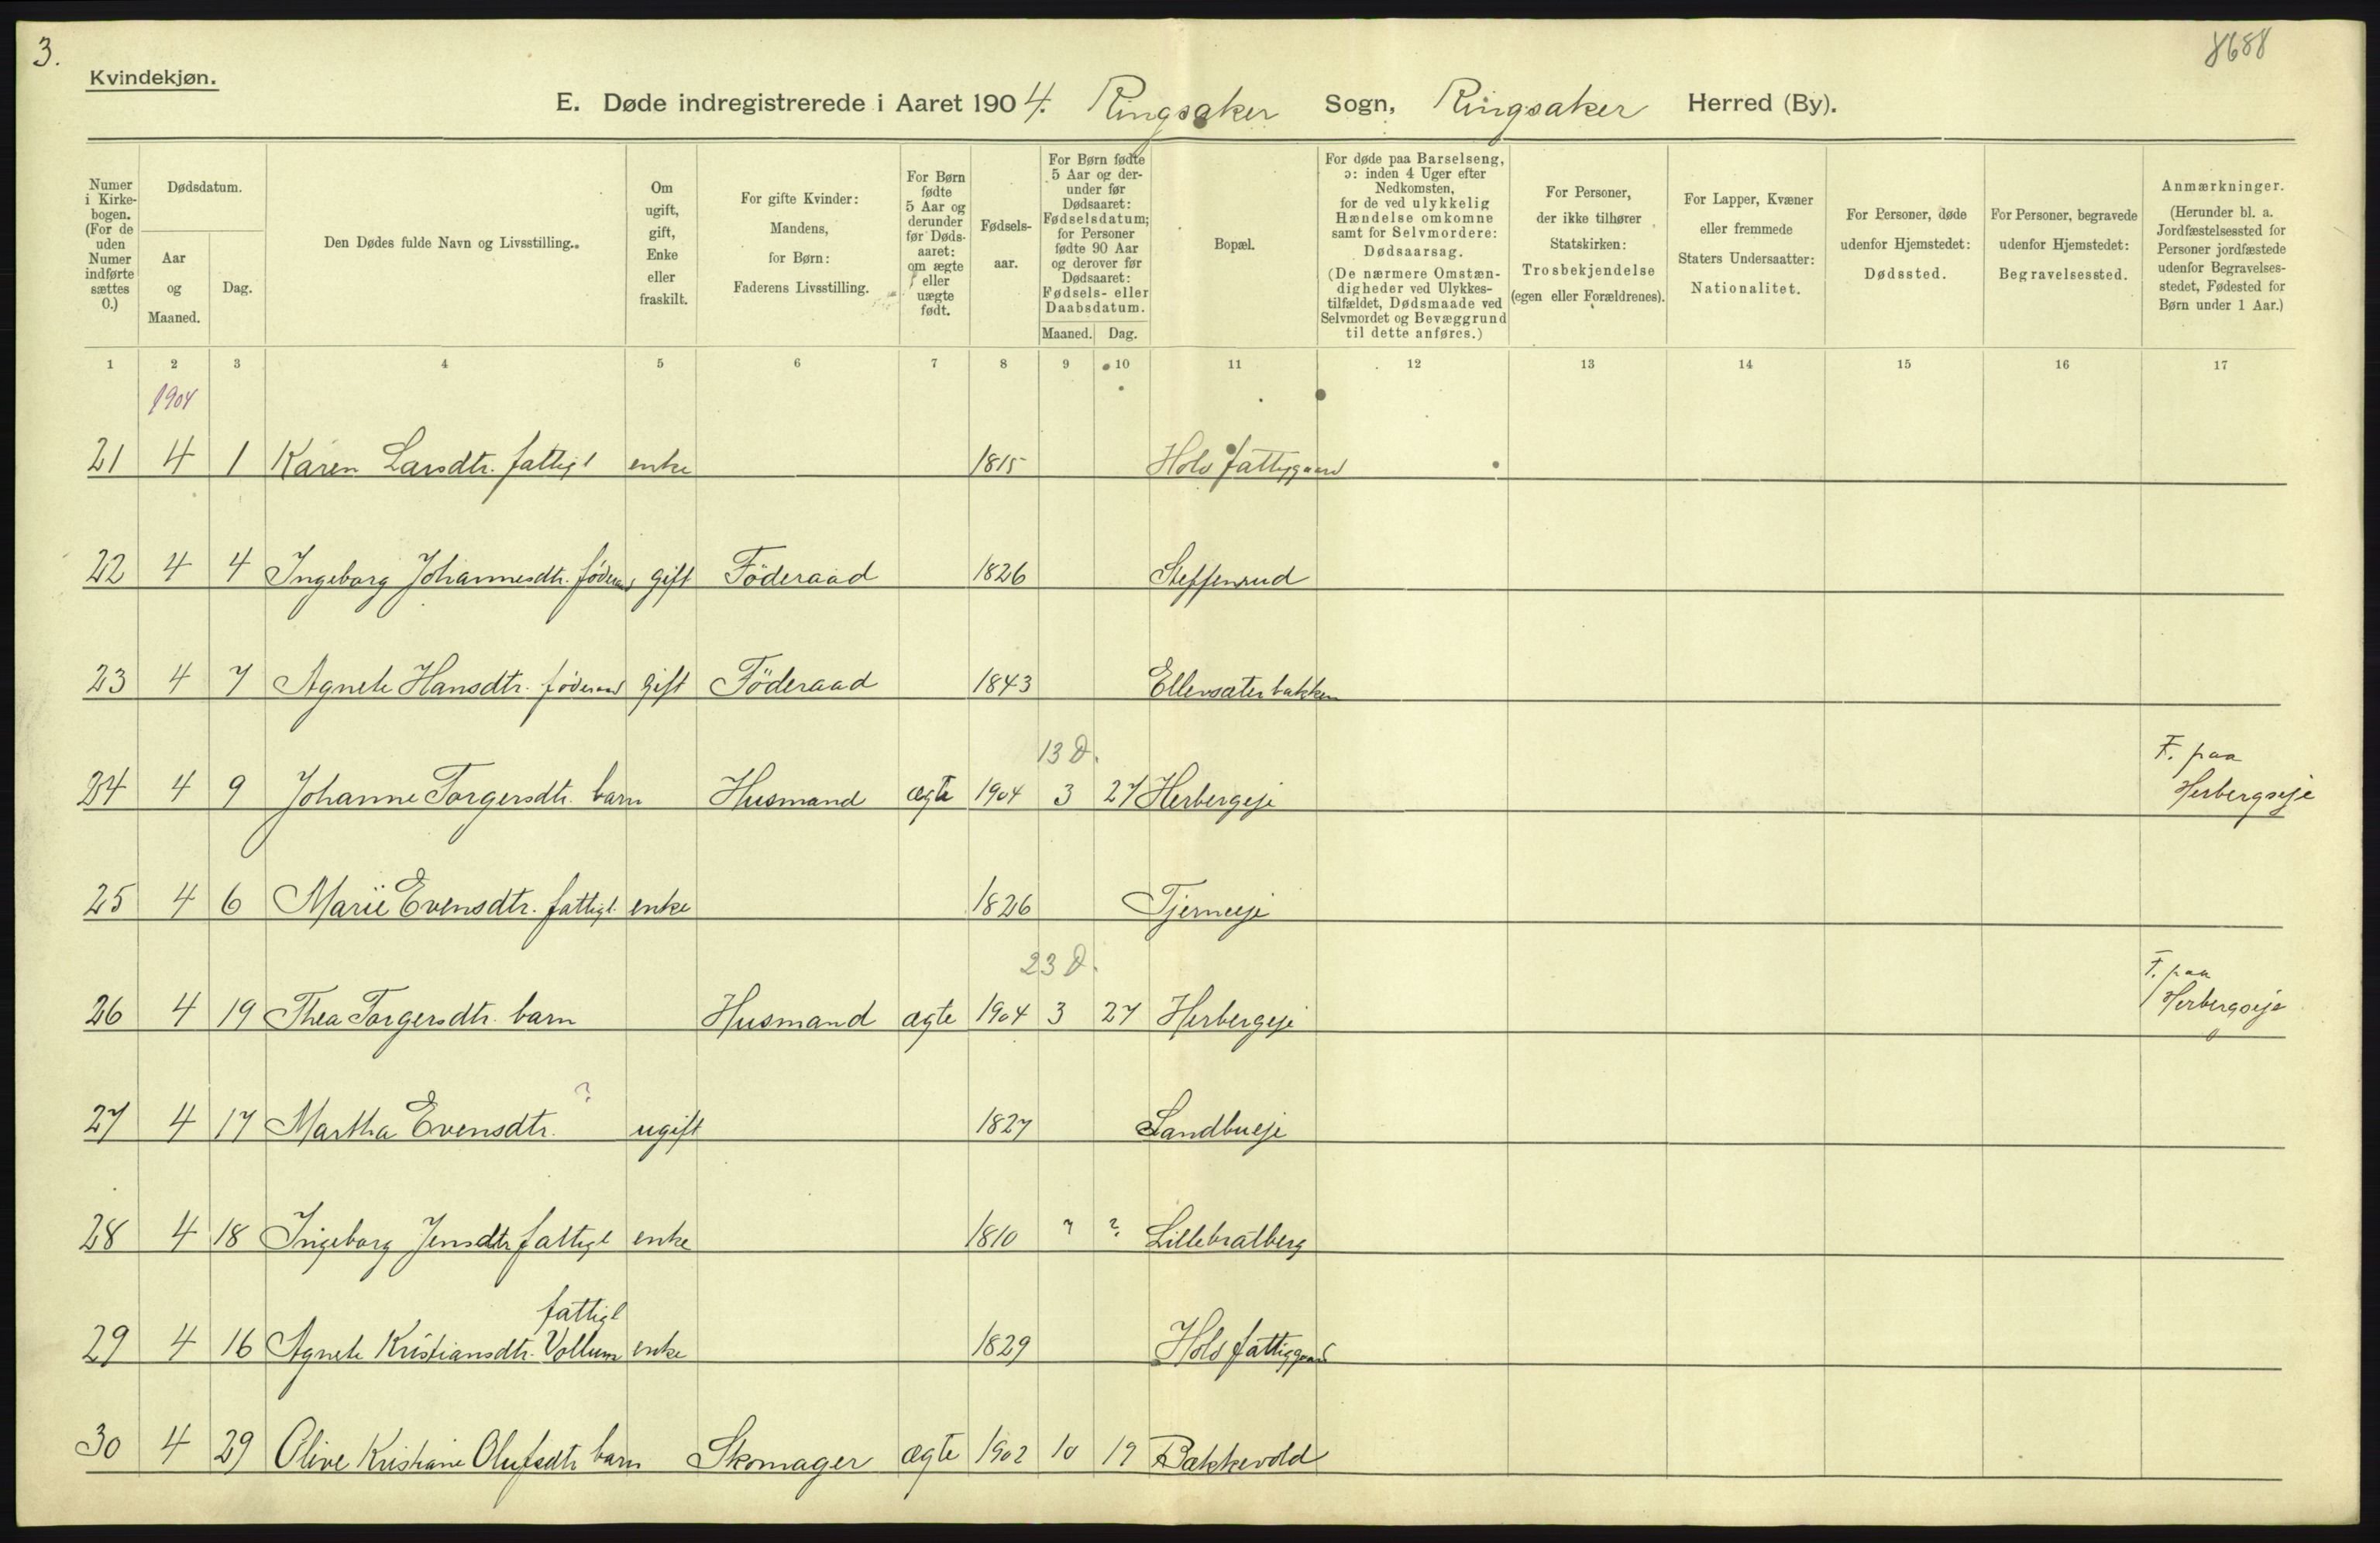 3.
8688
Kvindekjøn.
E. Døde indregistrerede i Aaret 1904. Ringsaker Sogn, Ringsaker Herred (By).
Numer i Kirkebogen. (For de uden Numer indførte sættes 0.)
Dødsdatum.
Aar og Maaned.
Dag.
Den Dødes fulde Navn og Livsstilling.
Om ugift, gift, Enke eller fraskilt.
For gifte Kvinder: Mandens, for Børn: Faderens Livsstilling.
For Børn fødte 5 Aar og derunder før Dødsaaret: om ægte eller uægte født.
Fødselsaar.
For Børn fødte 5 Aar og derunder før Dødsaaret: Fødselsdatum; for Personer fødte 90 Aar og derover før Dødsaaret: Fødsels- eller Daabsdatum.
Maaned. Dag.
Bopæl.
For døde paa Barselseng, ɔ: inden 4 Uger efter Nedkomsten, for de ved ulykkelig Hændelse omkomne samt for Selvmordere: Dødsaarsag. (De nærmere Omstændigheder ved Ulykkestilfældet, Dødsmaade ved Selvmordet og Bevæggrund til dette anføres.)
For Personer, der ikke tilhører Statskirken: Trosbekjendelse (egen eller Forældrenes).
For Lapper, Kvæner eller fremmede Staters Undersaatter: Nationalitet.
For Personer, døde udenfor Hjemstedet: Dødssted.
For Personer, begravede udenfor Hjemstedet: Begravelsessted.
Anmærkninger. (Herunder bl. a. Jordfæstelsessted for Personer jordfæstede udenfor Begravelsesstedet, Fødested for Børn under 1 Aar.)
1 2 3 4 5 6 7 8 9 10 11 12 13 14 15 16 17
1904
21 4 1 Karen Larsdtr. fattigl enke 1815 Hols fattiggaard
22 4 4 Ingeborg Johannesdtr. föderaad gift Föderaad 1826 Steffensrud
23 4 7 Agnete Hansdtr. föderaad gift Föderaad 1843 Ellevsæterbakken
13 D.
F. paa
24 4 9 Johanne Torgersdtr. barn Husmand ægte 1904 3 27 Herbergeje Herbergseje
25 4 6 Marie Evensdtr. fattigl. enke 1826 Tjerneeje
23 D.
F. paa
26 4 19 Thea Torgersdtr. barn Husmand ægte 1904 3 27 Herbergeje Herbergseje
?
27 4 17 Martha Evensdtr. ugift 1827 Sandbueje
28 4 18 Ingeborg Jensdtr fattigl enke 1810 ? ? Lillebratberg
fattigl
29 4 16 Agnete Kristiansdtr. Vollum enke 1829 Hols fattiggaard
30 4 29 Oline Kristiane Olufsdtr barn Skomager ægte 1902 10 19 Bækkevold